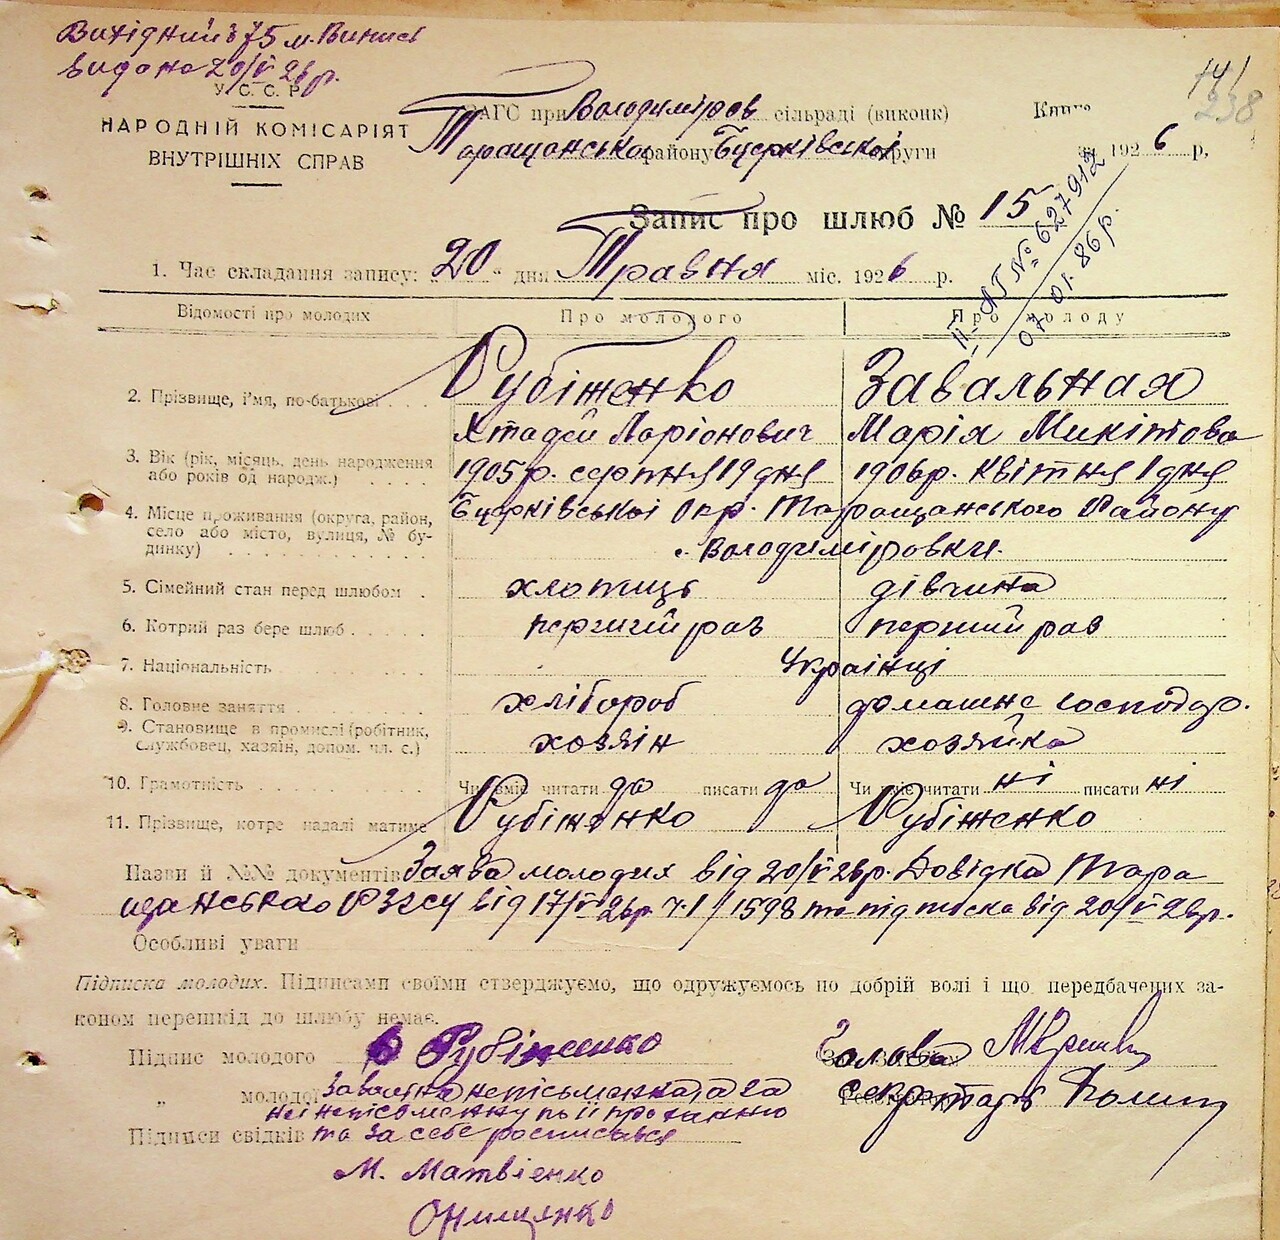 Вихідний 375 м. Випись
видано 20/V 26р.
У. С. С. Р.
НАРОДНІЙ КОМІСАРІЯТ
ВНУТРІШНІХ СПРАВ
ЗАГС при Володиміров сільраді (виконк)
Таращанського району Бцерківської округи
Книга
141
238
за 1926 р,
Запис про шлюб № 15
II-АГ № 627912
07 01. 86р.
1. Час складання запису: „20" дня Травня міс. 1926 р.
Відомості про молодих Про молодого Про молоду
2. Прізвище, ім'я, по-батькові Рубіженко Завальная
Ларіонович Марія Микітова
3. Вік (рік, місяць, день народження або років од народж.) 1905р. серпня 19 дня 1906р. Квітня 1 дня
4. Місце проживання (округа, район, село або місто, вулиця, № будинку) Бцерківської Окр. Таращанського Району
с. Володиміровки.
5. Сімейний стан перед шлюбом хлопець дівчина
6. Котрий раз бере шлюб перший раз перший раз
7. Національність Українці
8. Головне заняття хлібороб домашнє господар.
9. Становище в промислі (робітник, службовец, хазяїн, допом. чл. с.) хозяін хозяйка
10. Грамотність Чи вміє читати да писати да Чи вміє читати ні писати ні
11. Прізвище, котре надалі матиме Рубіженко Рубіженко
Назви й №№ документів Заява молодих від 20/V 26р. Довідка Тара
щанського РЗАГСу від 17/V 26р. ч. 1/1598 та підписка від 20/V-26р.
Особливі уваги
Підписка молодих. Підписами своїми стверджуємо, що одружуємось по добрій волі і що передбачених за-
коном перешкід до шлюбу немає.
Підпис молодого Рубіженко Голова
„ молодої Завальна неписьменна а за
неї неписьменну по її проханню
секретарь
Підписи свідків та за себе росписався
М. Матвієнко
Онищенко